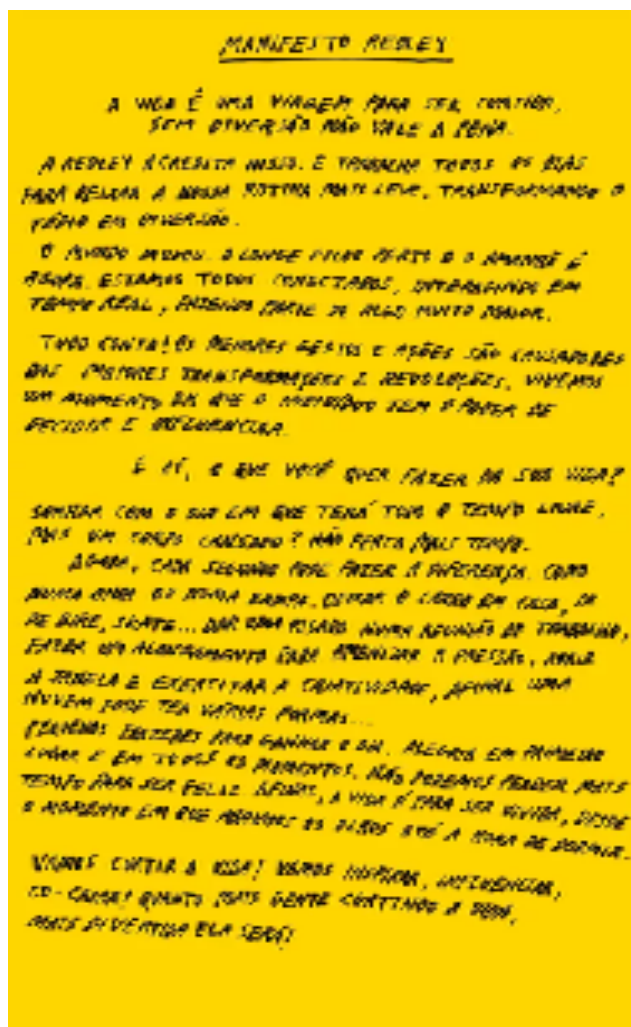 MANIFESTO REDLEY
A VIDA É UMA VIAGEM PARA SER CURTIDA,
SEM DIVERSÃO NÃO VALE A PENA.
A REDLEY ACREDITA NISSO. E TRABALHA TODOS OS DIAS
PARA DEIXAR A NOSSA ROTINA MAIS LEVE, TRANSFORMANDO O
TÉDIO EM DIVERSÃO.
O MUNDO MUDOU. O LONGE FICOU PERTO E O AMANHÃ É
AGORA. ESTAMOS TODOS CONECTADOS, INTERAGINDO EM
TEMPO REAL, FAZENDO PARTE DE ALGO MUITO MAIOR.
TUDO CONTA! OS MENORES GESTOS E AÇÕES SÃO CAUSADORES
DAS MAIORES TRANSFORMAÇÕES E REVOLUÇÕES. VIVEMOS
UM MOMENTO EM QUE O INDIVÍDUO TEM O PODER DE
DECIDIR E INFLUENCIAR.
E AÍ, O QUE VOCÊ QUER FAZER DA SUA VIDA?
SONHAR COM O DIA EM QUE TERÁ TODO O TEMPO LIVRE,
MAS UM CORPO CANSADO? NÃO PERCA MAIS TEMPO.
AGORA, CADA SEGUNDO PODE FAZER A DIFERENÇA. COMO
NUMA ONDA OU NUMA RAMPA. DEIXAR O CARRO EM CASA, IR
DE BIKE, SKATE... DAR UMA RISADA NUMA REUNIÃO DE TRABALHO,
FAZER UM ALONGAMENTO PARA AMENIZAR A PRESSÃO, ABRIR
A JANELA E EXERCITAR A CRIATIVIDADE, AFINAL UMA
NUVEM PODE TER VÁRIAS FORMAS...
PEQUENAS PARA GANHAR O DIA. ALEGRIA EM PRIMEIRO
LUGAR E EM TODOS OS MOMENTOS. NÃO PODEMOS PERDER MAIS
TEMPO PARA SER FELIZ. AFINAL, A VIDA É PARA SER VIVIDA, DESDE
O MOMENTO EM QUE ABRIMOS OS OLHOS ATÉ A HORA DE DORMIR.
VAMOS CURTIR A VIDA! VAMOS INSPIRAR, INFLUENCIAR,
CO-CRIAR! QUANTO MAIS GENTE CURTINDO A VIDA,
MAIS DIVERTIDA ELA SERÁ!